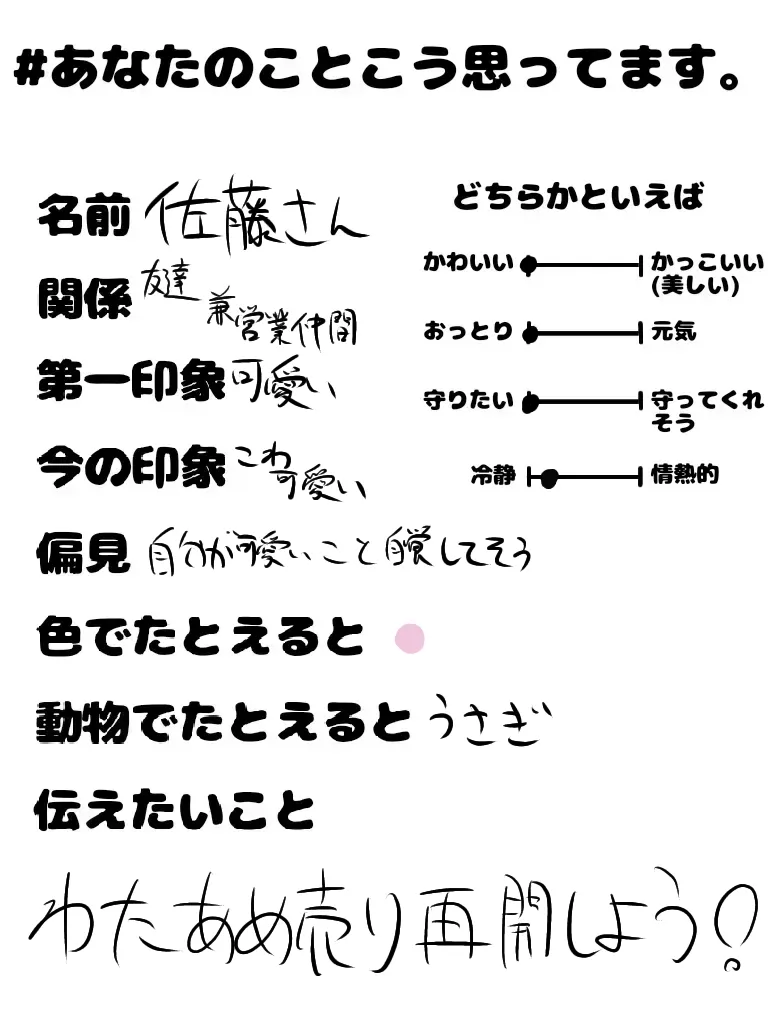 #あなたのことこう思ってます。
名前 佐藤さん
関係 友達 兼営業仲間
第一印象 可愛い
今の印象 こわ可愛い
偏見 自分が可愛いこと自覚してそう
色でたとえると
動物でたとえると うさぎ
伝えたいこと
わたあめ売り再開しよう!
どちらかといえば
かわいい かっこいい
(美しい)
おっとり 元気
守りたい 守ってくれ
そう
冷静 情熱的